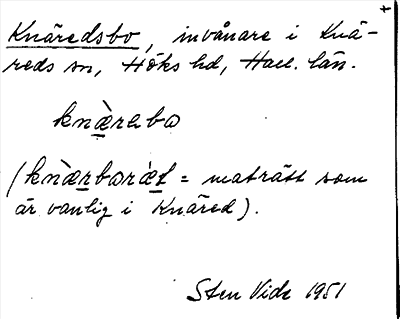 +
Knäredsbo, invånare i Knä-
reds sn, Höks hd, Hall. län.
knæ̀rabo
(knæ̀rbaræ̀t = maträtt som
är vanlig i Knäred).
Sten Vide 1951